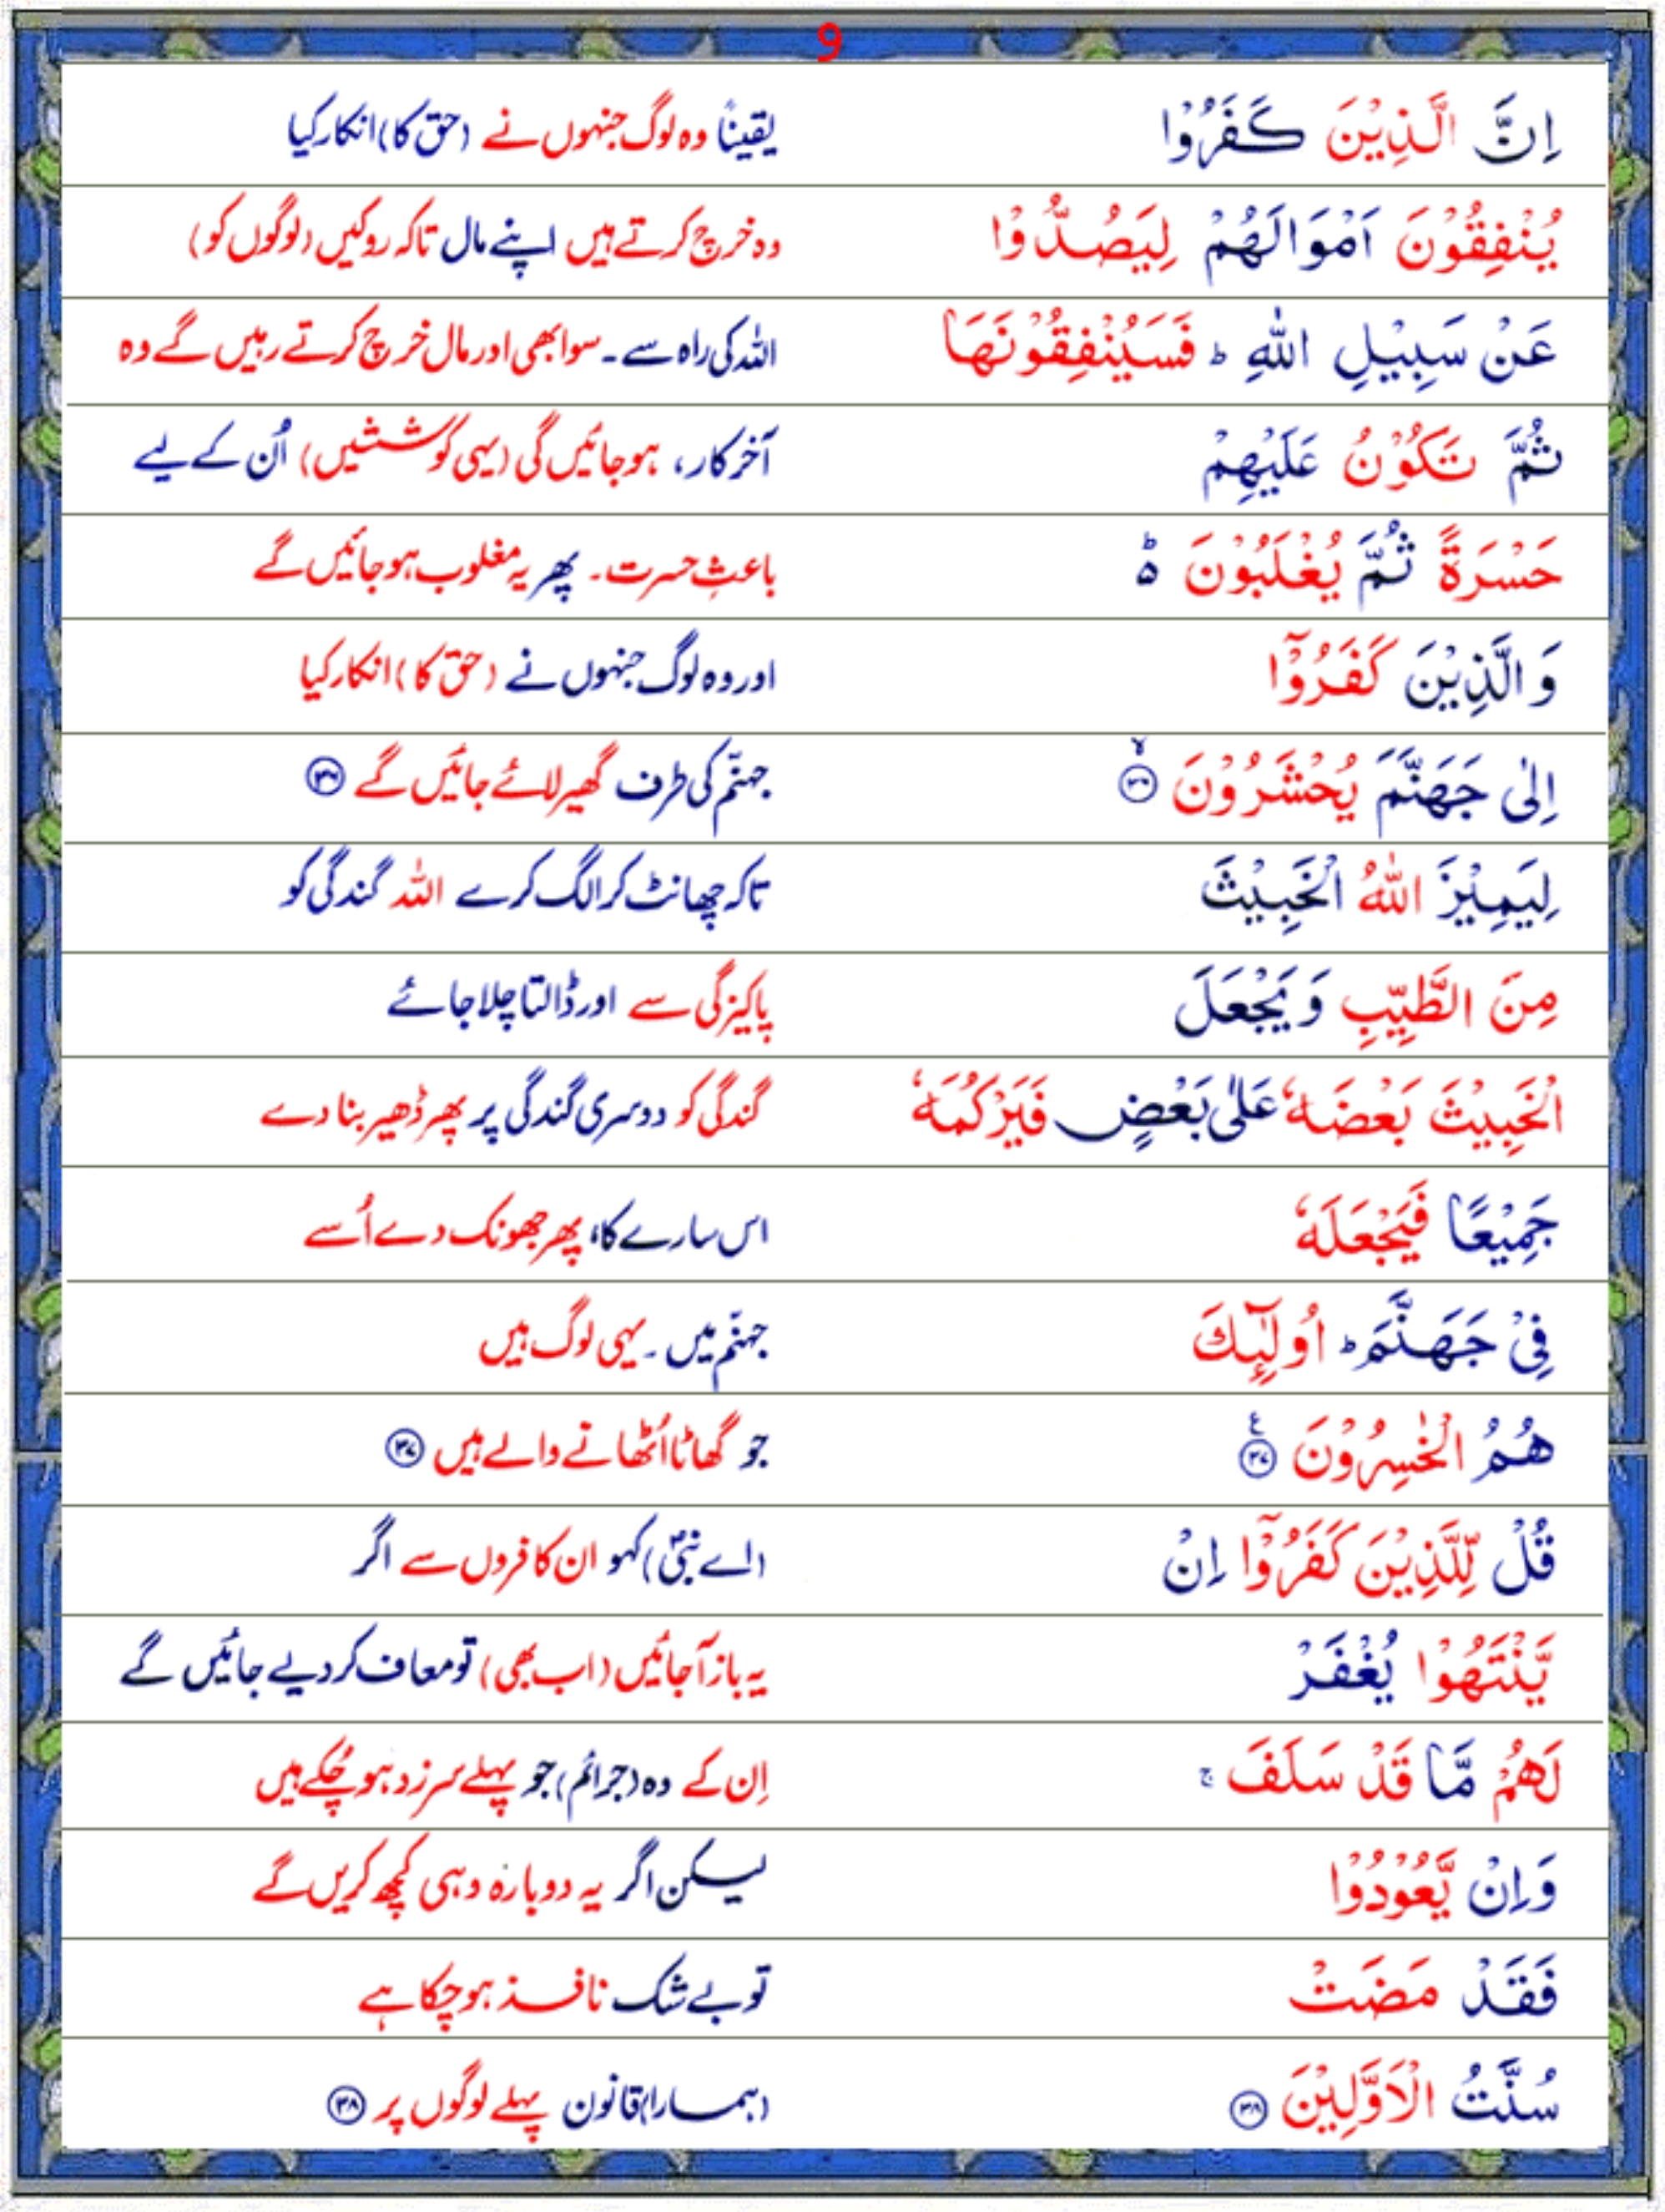 9
اِنَّ الَّذِیْنَ كَفَرُوْا یقیناً وہ لوگ جنہوں نے (حق کا) انکار کیا
یُنْفِقُوْنَ اَمْوَالَهُمْ لِیَصُدُّوْا وہ خرچ کرتے ہیں اپنے مال تاکہ روکیں (لوگوں کو)
عَنْ سَبِیْلِ اللّٰهِ ؕ فَسَیُنْفِقُوْنَهَا اللہ کی راہ سے۔ سو ابھی اور مال خرچ کرتے رہیں گے وہ
ثُمَّ تَكُوْنُ عَلَیْهِمْ آخر کار، ہوجائیں گی (یہی کوششیں) اُن کے لیے
حَسْرَةً ثُمَّ یُغْلَبُوْنَ ؕ۬ باعثِ حسرت۔ پھر یہ مغلوب ہوجائیں گے
وَ الَّذِیْنَ كَفَرُوْۤا اور وہ لوگ جنہوں نے (حق کا) انکار کیا
اِلٰی جَهَنَّمَ یُحْشَرُوْنَ ۙ﴿۳۶﴾ جہنّم کی طرف گھیر لائے جائیں گے ﴿۳۶﴾
لِیَمِیْزَ اللّٰهُ الْخَبِیْثَ تاکہ چھانٹ کر الگ کرے اللہ گندگی کو
مِنَ الطَّیِّبِ وَ یَجْعَلَ پاکیزگی سے اور ڈالتا چلا جائے
الْخَبِیْثَ بَعْضَهٗ عَلٰی بَعْضٍ فَیَرْكُمَهٗ گندگی کو دوسری گندگی پر پھر ڈھیر بنا دے
جَمِیْعًا فَیَجْعَلَهٗ اس سارے کا، پھر جھونک دے اُسے
فِیْ جَهَنَّمَ ؕ اُولٰٓىِٕكَ جہنّم میں۔ یہی لوگ ہیں
هُمُ الْخٰسِرُوْنَ ﴿۳۷﴾ ع جو گھاٹا اُٹھانے والے ہیں ﴿۳۷﴾
قُلْ لِّلَّذِیْنَ كَفَرُوْۤا اِنْ (اے نبیؐ) کہو ان کافروں سے اگر
یَّنْتَهُوْا یُغْفَرْ یہ باز آجائیں (اب بھی) تو معاف کردیے جائیں گے
لَهُمْ مَّا قَدْ سَلَفَ ۚ اِن کے وہ (جرائم) جو پہلے سرزد ہوچُکے ہیں
وَ اِنْ یَّعُوْدُوْا لیکن اگر یہ دوبارہ وہی کچھ کریں گے
فَقَدْ مَضَتْ تو بے شک نافذ ہوچکا ہے
سُنَّتُ الْاَوَّلِیْنَ ﴿۳۸﴾ (ہمارا) قانون پہلے لوگوں پر ﴿۳۸﴾